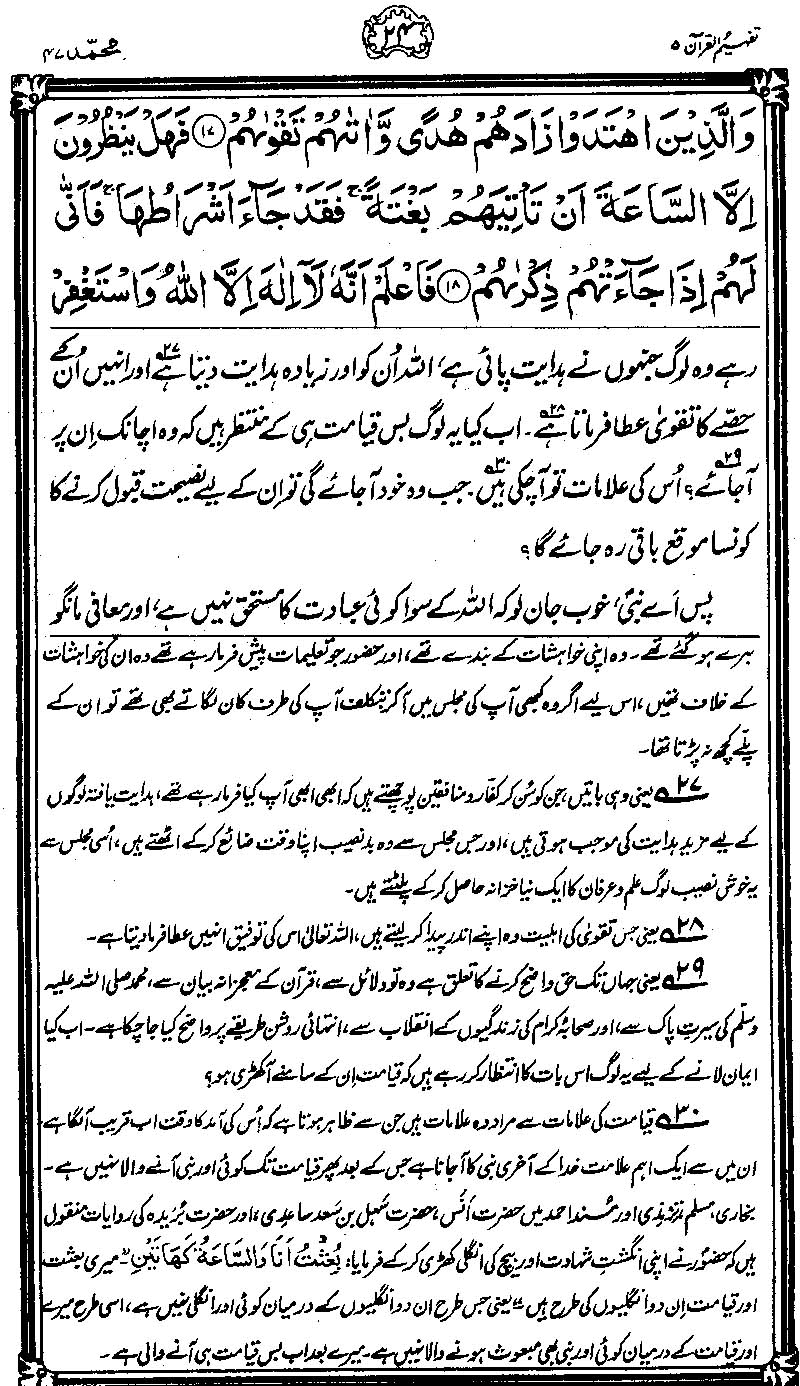 تفہیم القرآن ۵
۲۴
محمّد ۴۷
وَالَّذِيْنَ اهْتَدَوْا زَادَهُمْ هُدًى وَّاٰتٰىهُمْ تَقْوٰىهُمْ ﴿۱۷﴾ فَهَلْ يَنْظُرُوْنَ
اِلَّا السَّاعَةَ اَنْ تَاْتِيَهُمْ بَغْتَةً ۚ فَقَدْ جَآءَ اَشْرَاطُهَا ۚ فَاَنّٰى
لَهُمْ اِذَا جَآءَتْهُمْ ذِكْرٰىهُمْ ﴿۱۸﴾ فَاعْلَمْ اَنَّهٗ لَآ اِلٰهَ اِلَّا اللّٰهُ وَاسْتَغْفِرْ
رہے وہ لوگ جنہوں نے ہدایت پائی ہے، اللہ اُن کو اور زیادہ ہدایت دیتا ہے۲۷ اور انہیں اُن کے
حصّے کا تقویٰ عطا فرماتا ہے۲۸۔ اب کیا یہ لوگ بس قیامت ہی کے منتظر ہیں کہ وہ اچانک اِن پر
آجائے؟۲۹ اُس کی علامات تو آچکی ہیں۳۰۔ جب وہ خود آجائے گی تو اِن کے لیے نصیحت قبول کرنے کا
کونسا موقع باقی رہ جائے گا؟
پس اَے نبیؐ، خوب جان لو کہ اللہ کے سوا کوئی عبادت کا مستحق نہیں ہے، اور معافی مانگو
بہرے ہو گئے تھے۔ وہ اپنی خواہشات کے بندے تھے، اور حضور جو تعلیمات پیش فرما رہے تھے وہ ان کی خواہشات
کے خلاف تھیں، اس لیے اگر وہ کبھی آپ کی مجلس میں آکر بتکلف آپ کی طرف کان لگاتے بھی تھے تو ان کے
پلّے کچھ نہ پڑتا تھا۔
۲۷؎ یعنی وہی باتیں، جن کو سُن کر کفار و منافقین پوچھتے ہیں کہ ابھی ابھی آپ کیا فرما رہے تھے، ہدایت یافتہ لوگوں
کے لیے مزید ہدایت کی موجب ہوتی ہیں، اور جس مجلس سے وہ بدنصیب اپنا وقت ضائع کر کے اٹھتے ہیں، اُسی مجلس سے
یہ خوش نصیب لوگ علم و عرفان کا ایک نیا خزانہ حاصل کر کے پلٹتے ہیں۔
۲۸؎ یعنی جس تقویٰ کی اہلیت وہ اپنے اندر پیدا کر لیتے ہیں، اللہ تعالیٰ اس کی توفیق انہیں عطا فرما دیتا ہے۔
۲۹؎ یعنی جہاں تک حق واضح کرنے کا تعلق ہے وہ تو دلائل سے، قرآن کے معجزانہ بیان سے، محمد صلی اللہ علیہ
وسلّم کی سیرتِ پاک سے، اور صحابۂ کرام کی زندگیوں کے انقلاب سے، انتہائی روشن طریقے پر واضح کیا جا چکا ہے۔ اب کیا
ایمان لانے کے لیے یہ لوگ اس بات کا انتظار کر رہے ہیں کہ قیامت اِن کے سامنے آکھڑی ہو؟
۳۰؎ قیامت کی علامات سے مراد وہ علامات ہیں جن سے ظاہر ہوتا ہے کہ اُس کی آمد کا وقت اب قریب آ لگا ہے
ان میں سے ایک اہم علامت خدا کے آخری نبی کا آجانا ہے جس کے بعد پھر قیامت تک کوئی اور نبی آنے والا نہیں ہے۔
بخاری، مسلم، ترمذی اور مُسند احمد میں حضرت اَنَس، حضرت سَہْل بن سَعد ساعدی، اور حضرت بُرَیدہ کی روایات منقول
ہیں کہ حضورؐ نے اپنی انگشتِ شہادت اور بیچ کی انگلی کھڑی کر کے فرمایا: بُعِثْتُ اَنَا وَالسَّاعَةُ كَهَاتَيْنِ۔ "میری بعثت
اور قیامت اِن دو انگلیوں کی طرح ہیں"۔ یعنی جس طرح ان دو انگلیوں کے درمیان کوئی اور انگلی نہیں ہے، اسی طرح میرے
اور قیامت کے درمیان کوئی اور نبی بھی مبعوث ہونے والا نہیں ہے۔ میرے بعد اب بس قیامت ہی آنے والی ہے۔